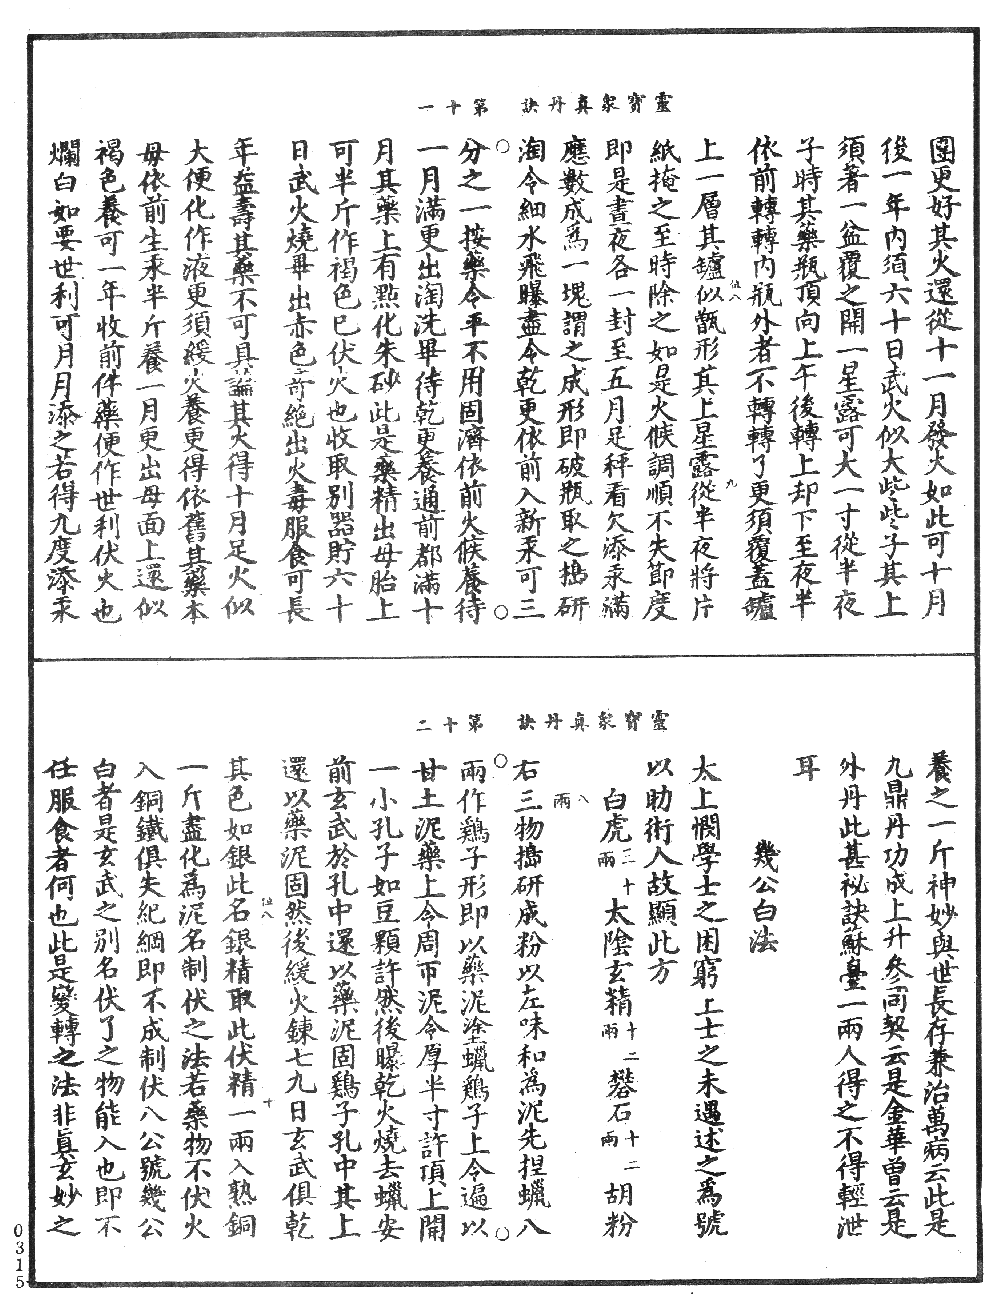 靈寶衆真丹訣　第十一
團更好其火還從十一月發火如此可十月
後一年内須六十日武火似大些些子其上
須著一盆覆之開一星露可大一寸從半夜
子時其藥瓶頂向上午後轉上却下至夜半
依前轉轉内瓶外者不轉轉了更須覆蓋鑪
位八　九
上一層其鑪似甑形其上星露從半夜將片
紙掩之至時除之如是火候調順不失節度
即是晝夜各一封至五月足秤看欠添汞滿
應數成爲一塊謂之成形即破瓶取之擣研
淘令細水飛曝盡令乾更依前入新汞可三
分之一按藥令平不用固濟依前火候養待
一月滿更出淘洗畢待乾更養通前都滿十
月其藥上有點化朱砂此是藥精出母胎上
可半斤作褐色已伏火也收取別器貯六十
日武火燒畢出赤色奇絶出火毒服食可長
年益壽其藥不可具論其火得十月足火似
大便化作液更須緩火養更得依舊其藥本
母依前生汞半斤養一月更出母面上還似
褐色養可一年收前件藥便作世利伏火也
爛白如要世利可月月添之若得九度添汞
靈寶衆真丹訣　第十二
養之一斤神妙與世長存兼治萬病云此是
九鼎丹功成上升叅同契云是金華曾云是
外丹此甚祕訣蘇臺一兩人得之不得輕泄
耳
幾公白法
太上憫學士之困窮上士之未遇述之爲號
以助術人故顯此方
白虎三十兩　太陰玄精十二兩　礬石十二兩　胡粉
八兩
右三物擣研成粉以左味和爲泥先捏蠟八
兩作鷄子形即以藥泥塗蠟鷄子上令遍以
甘土泥藥上令周帀泥令厚半寸許頂上開
一小孔子如豆顆許然後曝乾火燒去蠟安
前玄武於孔中還以藥泥固鷄子孔中其上
還以藥泥固然後緩火鍊七九日玄武俱乾
位八　十
其色如銀此名銀精取此伏精一兩入熟銅
一斤盡化爲泥名制伏之法若藥物不伏火
入銅鐵俱失紀綱即不成制伏八公號幾公
白者是玄武之別名伏了之物能入也即不
任服食者何也此是變轉之法非眞玄妙之
0315